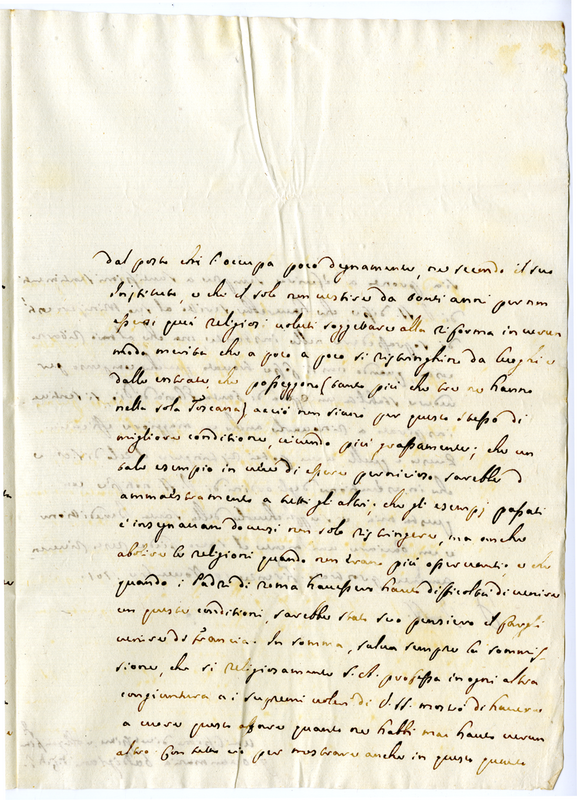 dal posto ch'è l'occupa poco degnamente, ne secondo il suo
Instituto, e che il solo non vestire da tanti anni per non
essersi quei religiosi voluti soggettare alla riforma in verun
modo merita che a poco a poco si ristringhino da luoghi e
dalle entrate che posseggono (tanto più che tre ne hanno
nella sola Toscana) acciò non siano per questo stesso di
migliore conditione, vivendo più grassamente; che un
tale esempio in vece di essere pernicioso sarebbe d
ammaestramento a tutti gli altri; che gli esempj passati
c'insegnavan doversi non solo ristringere, ma anche
abolire le religioni quando non erano più osservanti; e che
quando i Padri di Roma havessero havuto difficoltà di venire
con queste conditioni, sarebbe stato suo pensiero il fargli
venire di Francia. In somma, salva sempre la sommis
sione, che sì religiosamente S.A. professa in ogni altra
congiuntura a i supremi voleri di S.S. mostrò di havere
a cuore questo affare quanto ne habbi mai havuto verun
altro. Con tutto ciò per mostrare anche in questo quanto